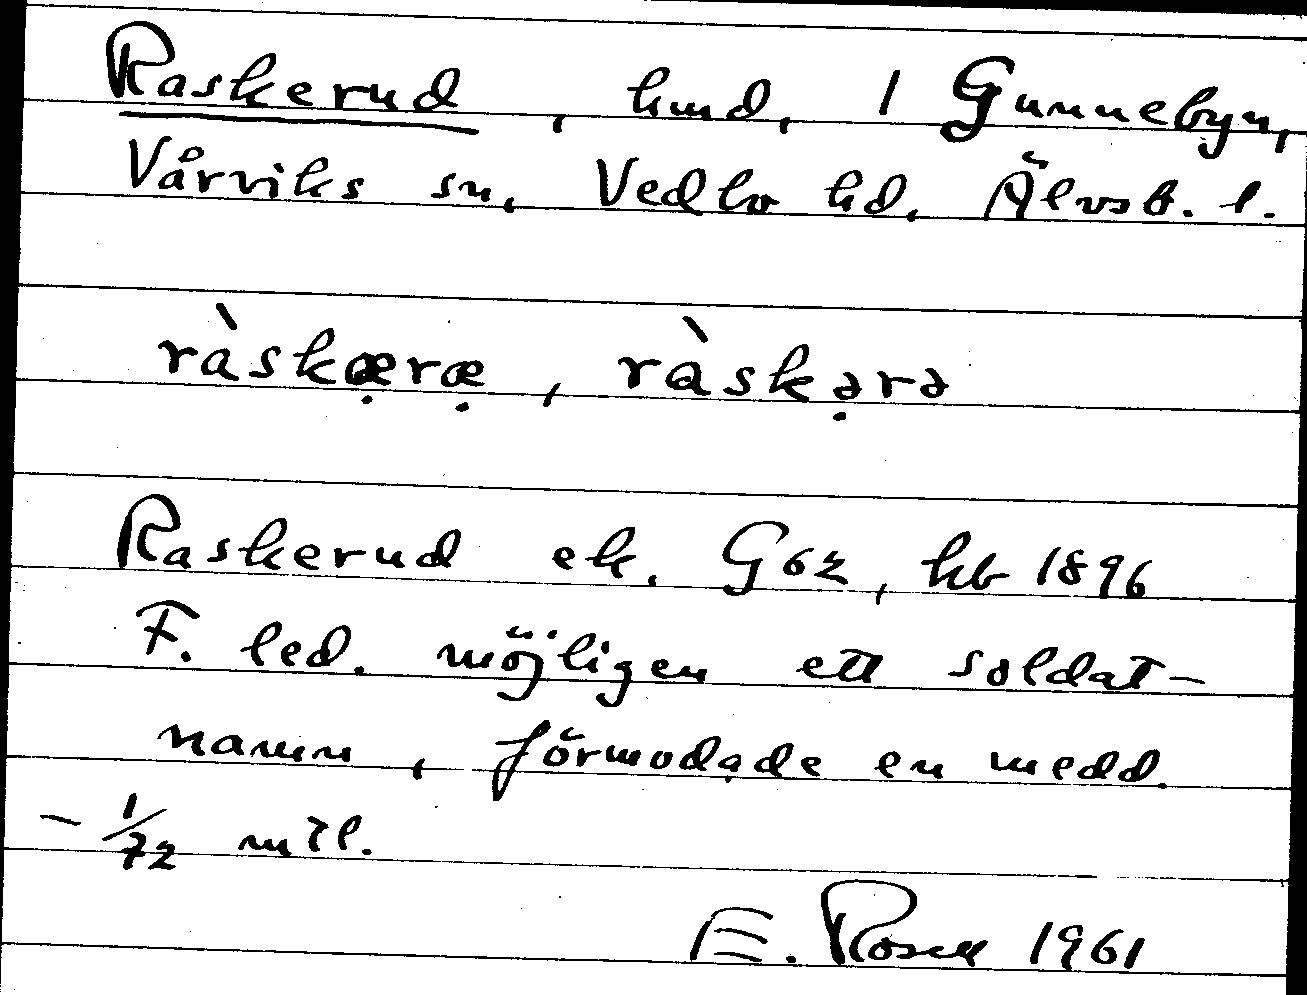 Raskerud, hmd, 1 Gunnebyn,
Vårviks sn, Vedbo hd. Älvsb. l.
ràskæ̣ræ̣, ràskə̣rə
Raskerud ek. G62, kb 1896
F. led. möjligen ett soldat-
namn, förmodade en medd.
- 1/72 mtl.
E. Rosell 1961